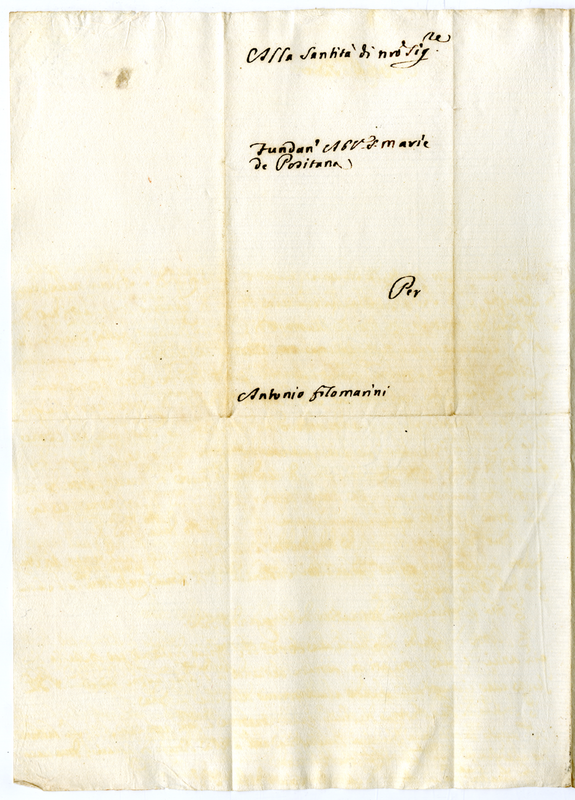 Alla Santità di nro Sigre
Fundan' Abb. S. Marie
de Positana
Per
Antonio filomarini